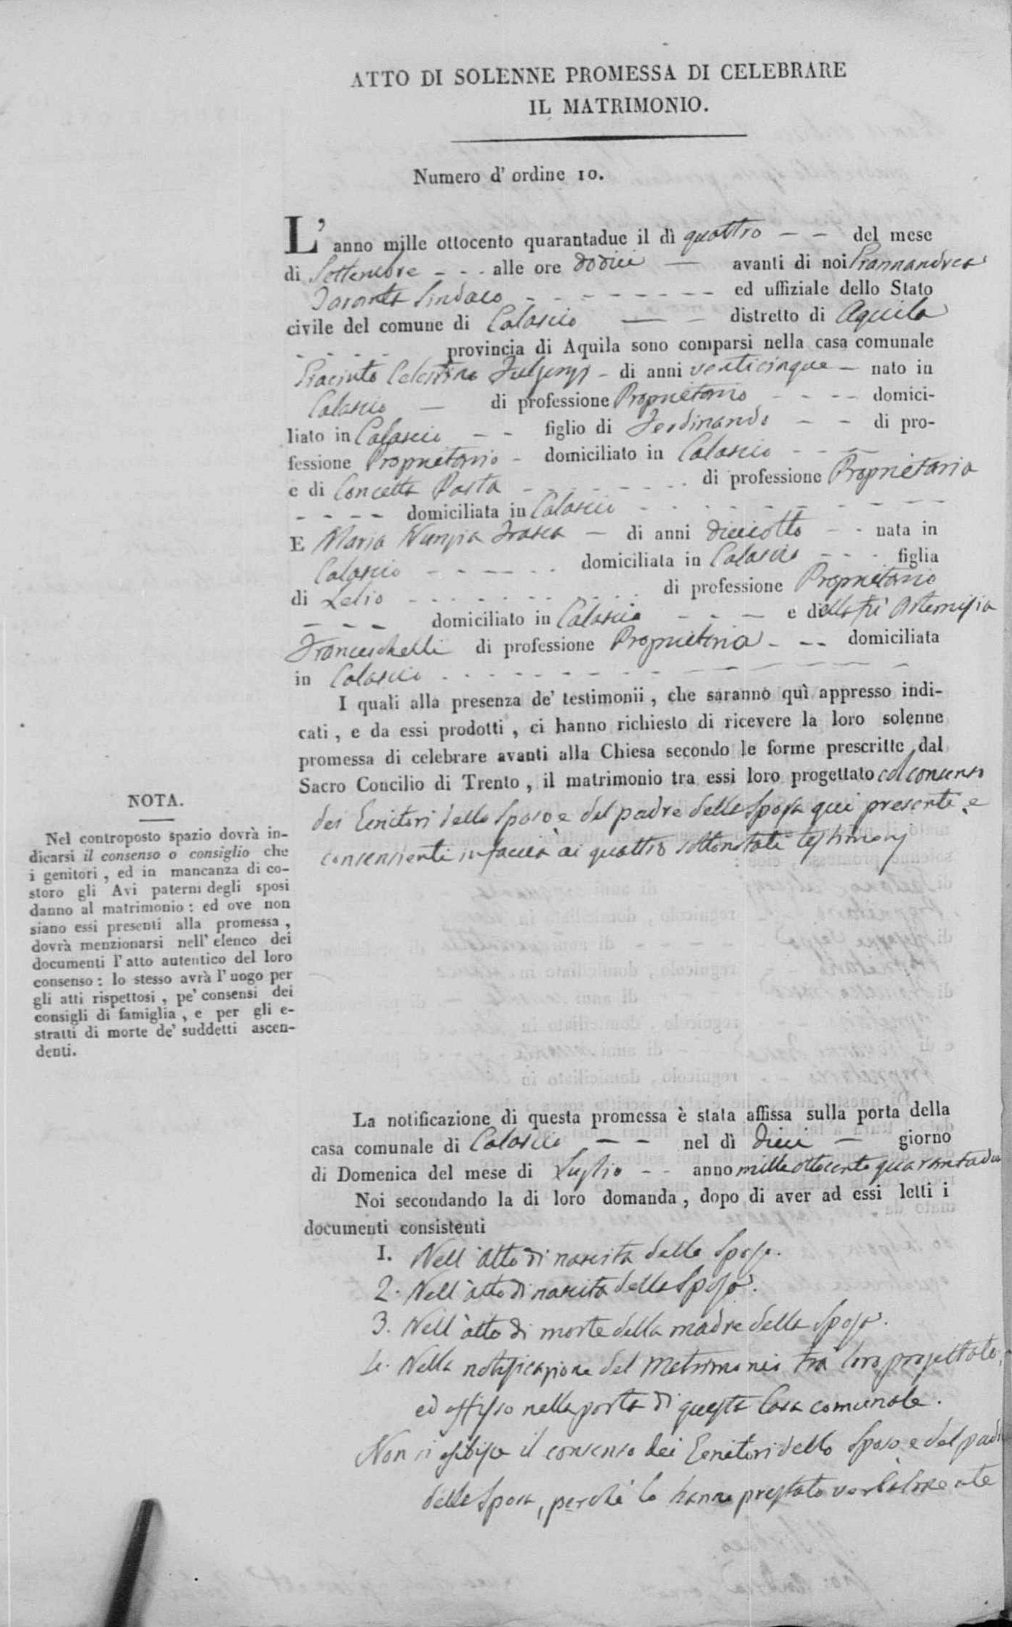 ATTO DI SOLENNE PROMESSA DI CELEBRARE
IL MATRIMONIO.
Numero d' ordine 10.
L' anno mille ottocento quarantadue il dì quattro – – del mese
di Settembre - - - alle ore dodici — avanti di noi Giannandrea
Taranta Sindaco - - - - - - - - ed uffiziale dello Stato
civile del comune di Calascio — – distretto di Aquila
- - - - provincia di Aquila sono comparsi nella casa comunale
Giacinto Celestino Fulgenzj - di anni venticinque – nato in
Calascio — di professione Proprietario - - - - domici-
liato in Calascio - - figlio di Ferdinando - - di pro-
fessione Proprietario - domiciliato in Calascio - - - -
e di Concetta Pasta - - - - - - - di professione Proprietaria
- - - - domiciliata in Calascio - - - - - - - - -
E Maria Nunzia Frasca – di anni dieciotto - - nata in
Calascio - - - - - - domiciliata in Calascio - - - figlia
di Lelio - - - - - - - - - di professione Proprietario
- - - - domiciliato in Calascio - - - - e di della fù Artemisia
Franceschelli di professione Proprietaria - - - domiciliata
in Calascio - - - - - - - - - - - - - -
I quali alla presenza de' testimonii , che saranno quì appresso indi-
cati , e da essi prodotti , ci hanno richiesto di ricevere la loro solenne
promessa di celebrare avanti alla Chiesa secondo le forme prescritte dal
Sacro Concilio di Trento , il matrimonio tra essi loro progettato col consenso
dei Genitori dello sposo e del padre della sposa qui presenti, e
consenzienti in faccia ai quattro sottonotati testimonj
NOTA.
Nel controposto spazio dovrà in-
dicarsi il consenso o consiglio che
i genitori , ed in mancanza di co-
storo gli Avi paterni degli sposi
danno al matrimonio : ed ove non
siano essi presenti alla promessa ,
dovrà menzionarsi nell' elenco dei
documenti l' atto autentico del loro
consenso : lo stesso avrà l' uogo per
gli atti rispettosi , pe' consensi dei
consigli di famiglia , e per gli e-
stratti di morte de' suddetti ascen-
denti.
La notificazione di questa promessa è stata affissa sulla porta della
casa comunale di Calascio — – nel dì dieci — giorno
di Domenica del mese di Luglio - - anno mille ottocento quarantadue
Noi secondando la di loro domanda , dopo di aver ad essi letti i
documenti consistenti
1. Nell' atto di nascita dello Sposo.
2. Nell' atto di nascita della Sposa.
3. Nell' atto di morte della madre della Sposa.
4. Nella notificazione del Matrimonio tra loro progettato,
ed affisso nella porta di questa Casa comunale.
Non si esibisce il consenso dei Genitori dello Sposo e del padre
della Sposa, perchè lo hanno prestato verbalmente